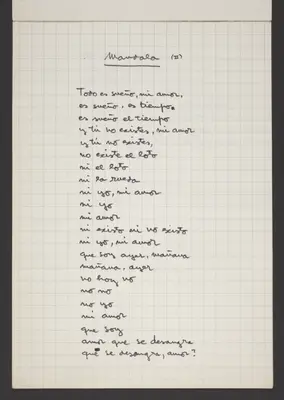 Mandala (II)
Todo es sueño, mi amor,
es sueño, es tiempo,
es sueño el tiempo
y tú no existes, mi amor
y tú no existes,
no existe el loto
ni el loto
ni la rueda
ni yo, mi amor
ni yo
mi amor
ni existo ni no existo
ni yo, mi amor
que soy ayer, mañana
mañana, ayer
no hoy no
no no
no yo
mi amor
que soy
amor que se desangra
qué se desangra, amor?